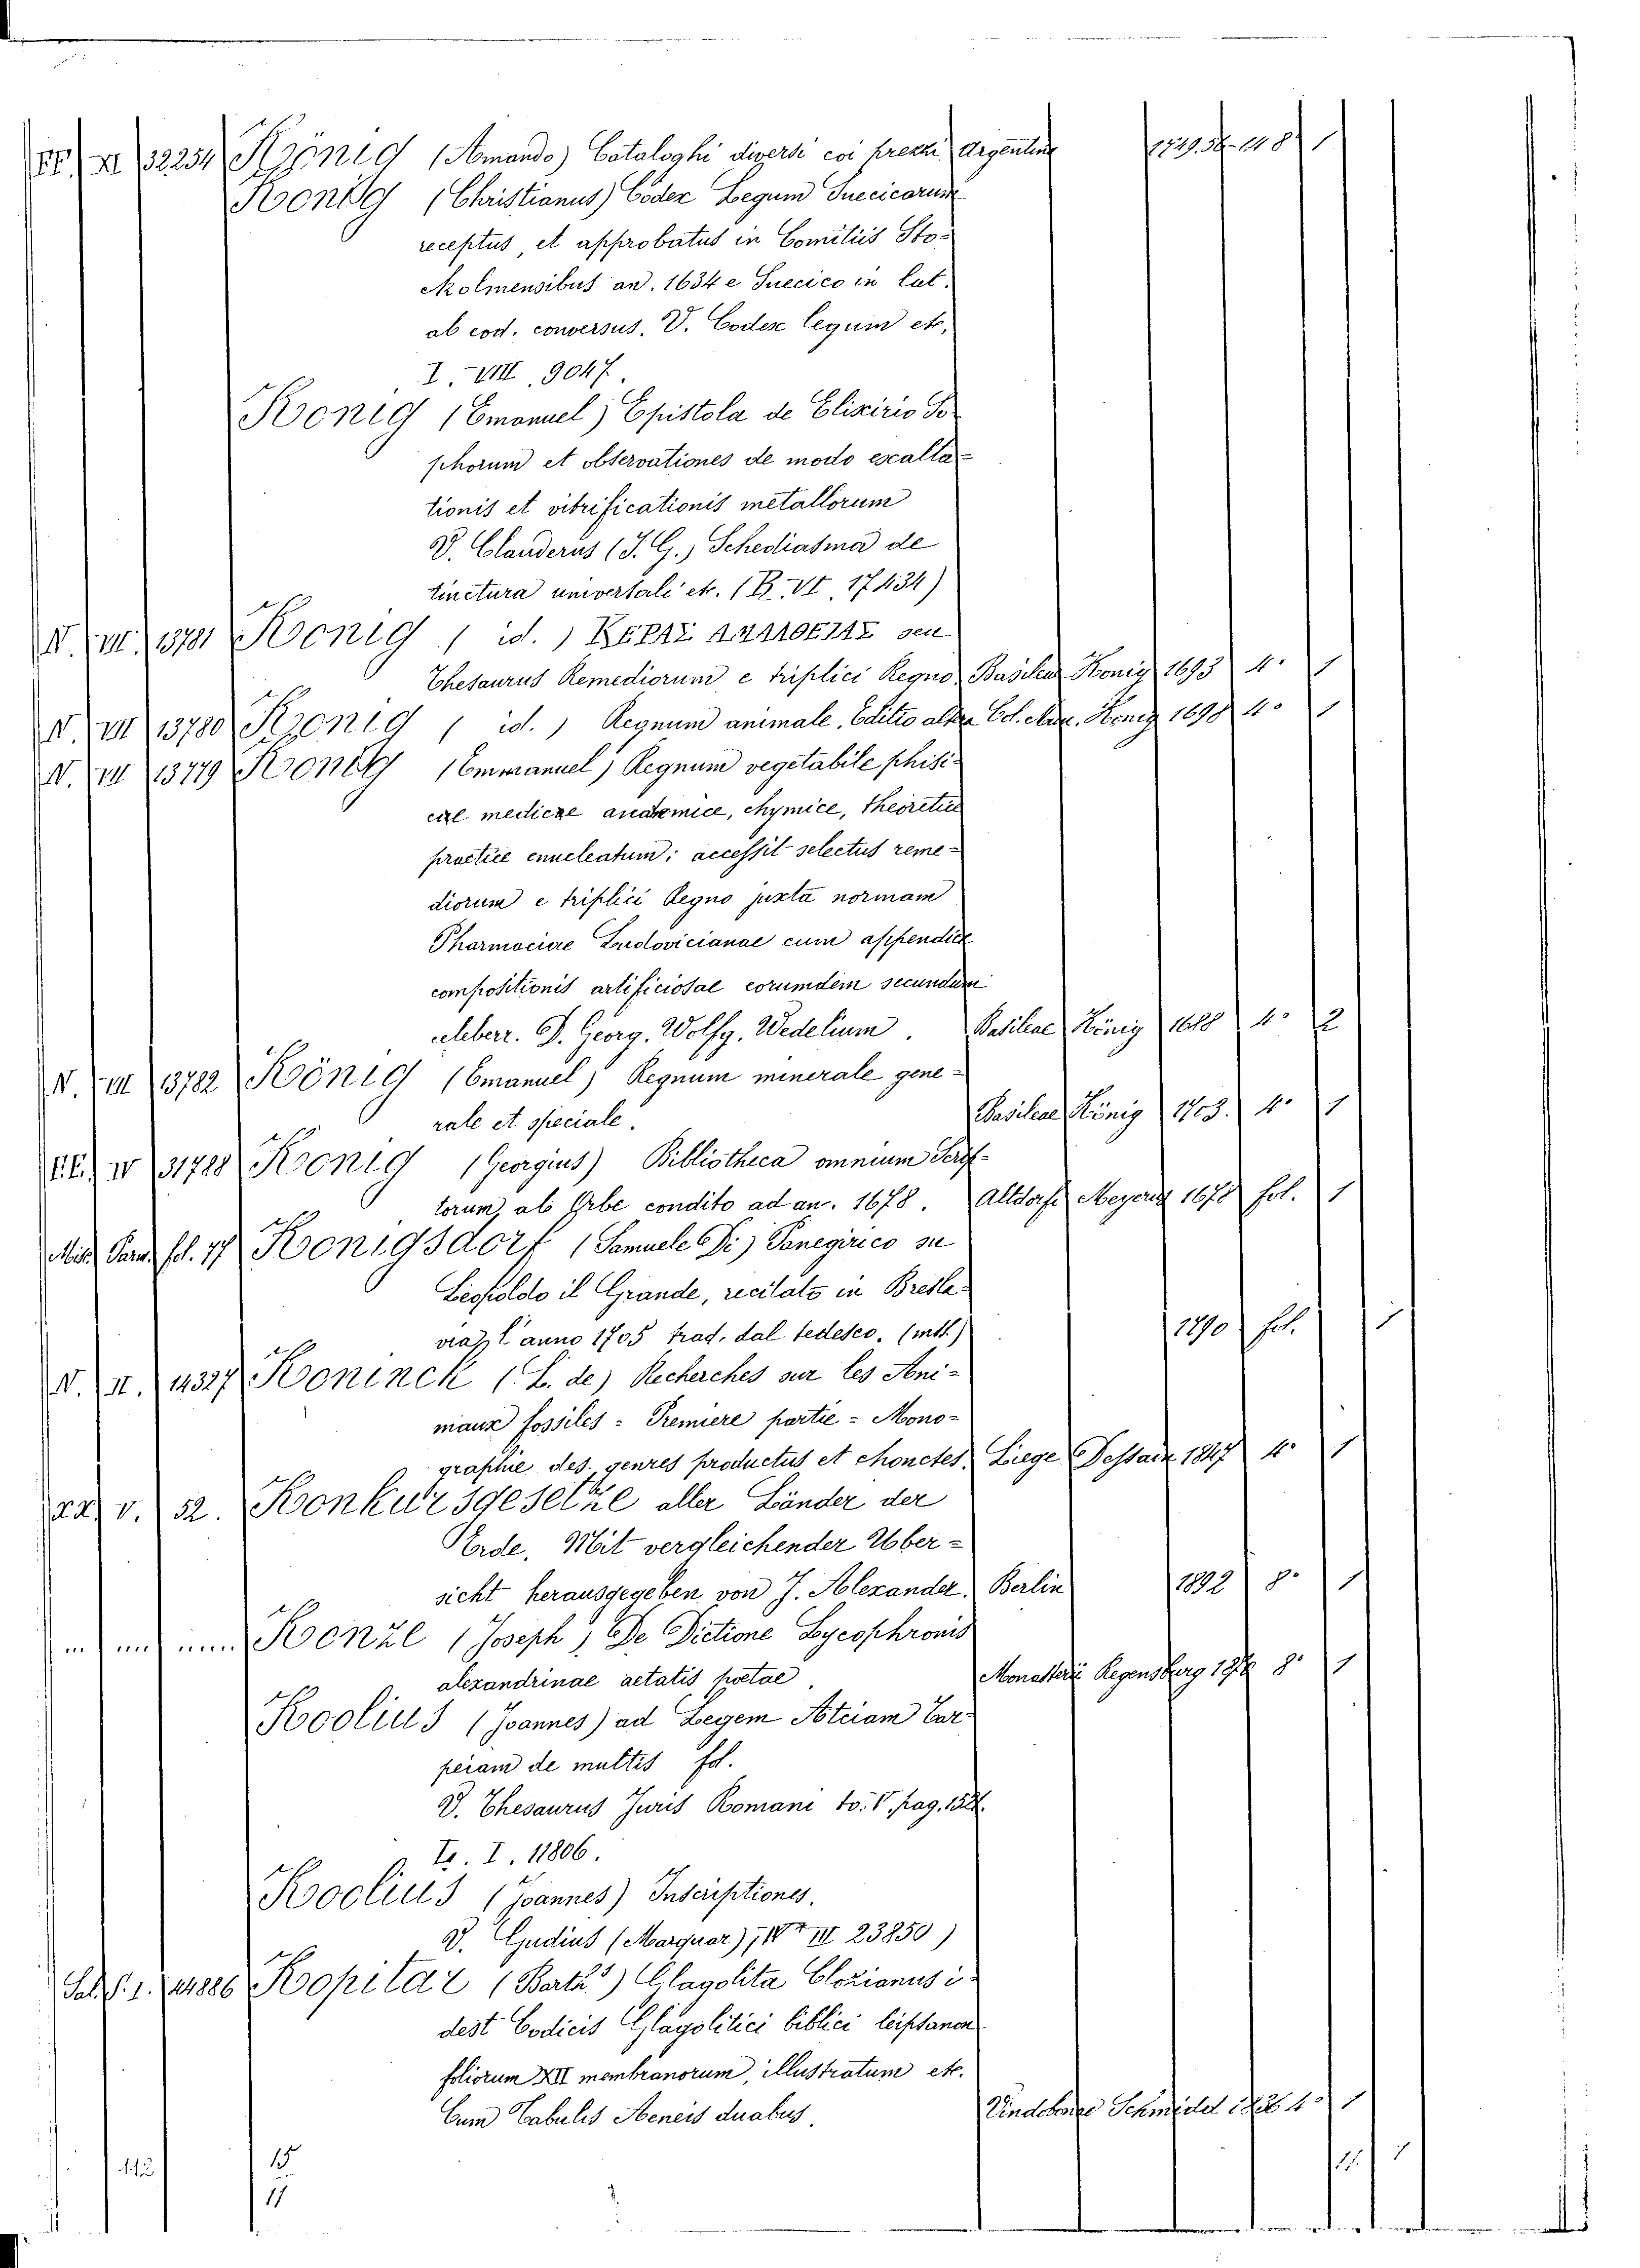 FF. XI 32254 König (Amando) Cataloghi diversi coi prezzi Argentine 1749.56- 8 1
König (Christianus) Codex Legum Suecicarum
receptus, et approbatus in Comitiis Sto-
ckolmensibus an. 1634 e Suecico in lat.
ab eod. conversus. V. Codex legum etc.
I. VIII. 9047.
König (Emanuel) Epistola de Elixirio So-
phorum et observationes de modo escalta-
tionis et vitrificationis metallorum
V. Clauderus (J. G.) Schediasma de
tinctura universali etc. (B. VI. 17434)
N. VII. 13781 König (id.) seu
Thesaurus Remediorum e triplici Regno. Basileae König 1693 4. 1
N. VII 13780 König (id.) Regnum animale. Editio altera Col. Mun. König 1698 4. 1
N. VII 13779 König (Emmanuel) Regnum vegetabile phisi-
cae medicae anatomice, chymice, theoretice
practice enucleatum: accessit selectus reme-
diorum e triplici Regno juxta normam
Pharmaciae Ludovicianae cum appendice
compositionis artificiosae eorumdem secundum
celeberr. D. Georg. Wolfg. Wedelium. Basileae König 1688 4. 2
N. VII 13782 König (Emanuel) Regnum minerale gene-
rale et speciale. Basileae König 1703. 4. 1
EE. IV 31788 König (Georgius) Bibliotheca omnium Scrip-
torum, ab Orbe condito ad an. 1678. Altdorfi Meyeri 1678 fol. 1
Mis. Parm. fol. 17 Königsdorf (Samuele Di) Panegirico su
Leopoldo il Grande, recitato in Bresla-
via l'anno 1705 trad. dal tedesco. (mtl.) 1790 fol. 1
N. II. 14327 Koninck (L. de) Recherches sur les Ani-
maux fossiles = Premiere partie = Mono-
graphie des genres productus et chonetes. Liege Dessain 1847 4. 1
AA. V. 52. Konkursgesetze aller Länder der
Erde. Mit vergleichender Uber-
sicht herausgegeben von J. Alexander. Berlin 1892 8. 1
Konze (Joseph) De Dictione Lycophronis
alexandrinae aetatis poetae. Monasterii Regensberg 8. 1
Koolius (Joannes) ad Legem Ateiam Tar-
peiam de multis fol.
V. Thesaurus Juris Romani to. V. pag.
Tr. I. 11806.
Koolius (Joannes) Inscriptiones.
V. Gudius (Marquar) III 23850)
Sal. F. I. 14886 Kopitar (Barth.) Glagolita Clozianus i-
dest Codicis Glagolitici biblici leipsanon
foliorum XII membranorum, illustratum etc.
Cum Tabulis Aeneis duabus. Vindobonae Schmidel 1836 4. 1
112 15 17. 1
17